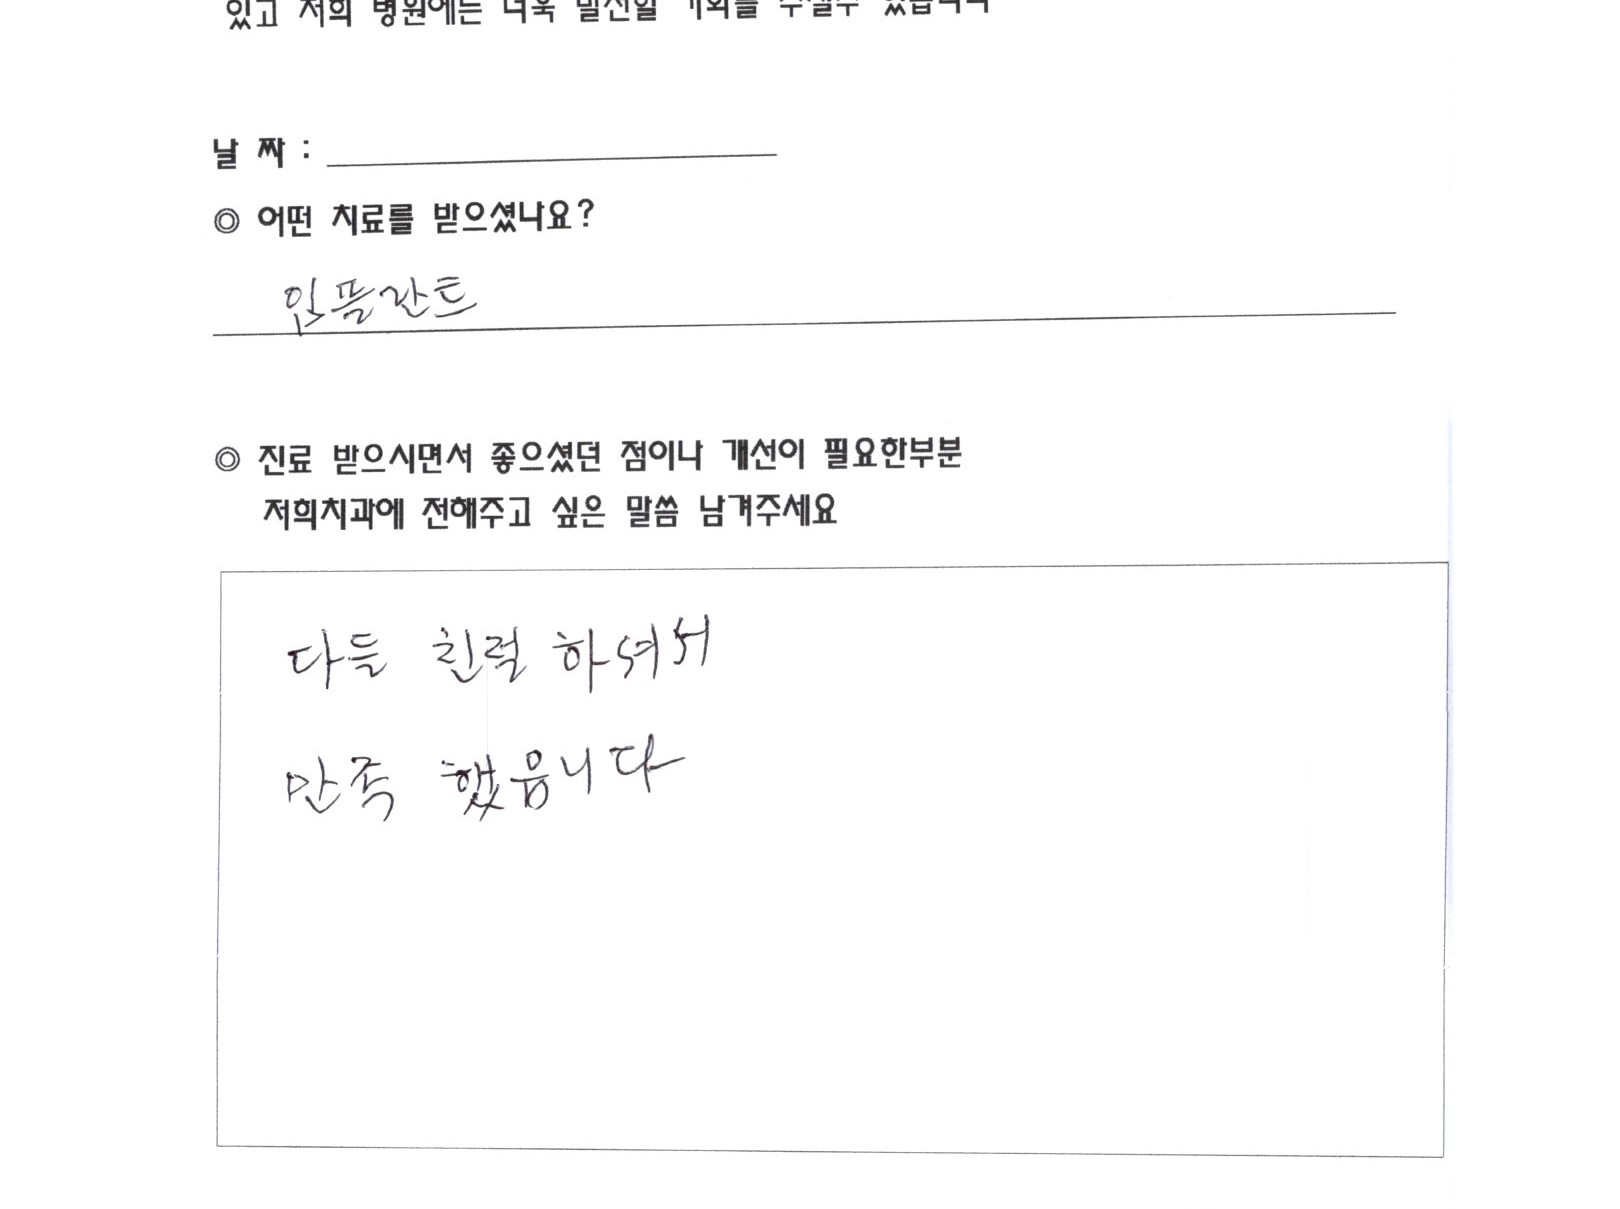 있고 저희 병원에는 더욱 발전할 기회를 주실수 있습니다
날 짜 :
◎ 어떤 치료를 받으셨나요?
임플란트
◎ 진료 받으시면서 좋으셨던 점이나 개선이 필요한부분
저희치과에 전해주고 싶은 말씀 남겨주세요
다들 친절 하셔서
만족 했읍니다